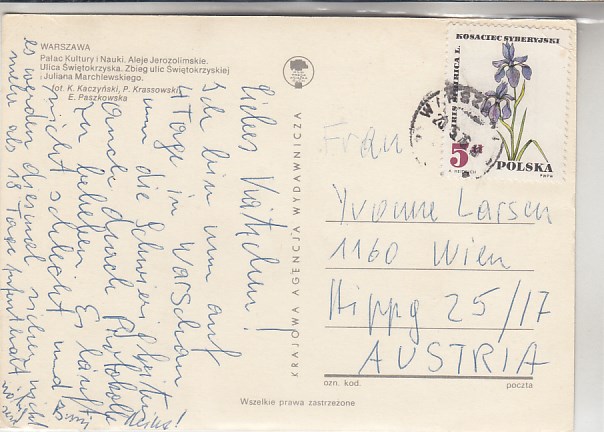 WARSZAWA
Pałac Kultury i Nauki. Aleje Jerozolimskie.
Ulica Świętokrzyska. Zbieg ulic Świętokrzyskiej
i Juliana Marchlewskiego.
Fot. K. Kaczyński, P. Krassowski,
E. Paszkowska
KRAJOWA AGENCJA WYDAWNICZA
Liebes
Ich bin nun auf
4 Tage in Warschau
um die
auch durch Protokoll
zu beheben. Es läuft
nicht schlecht und
es werden diesmal sicher nicht
mehr als 18 Tage
KOSACIEC SYBERYJSKI
IRIS SIBIRICA L.
5 zł
POLSKA
Frau
Yvonne Larsen
1160 Wien
Hippg 25/17
AUSTRIA
ozn. kod.
poczta
Wszelkie prawa zastrzeżone